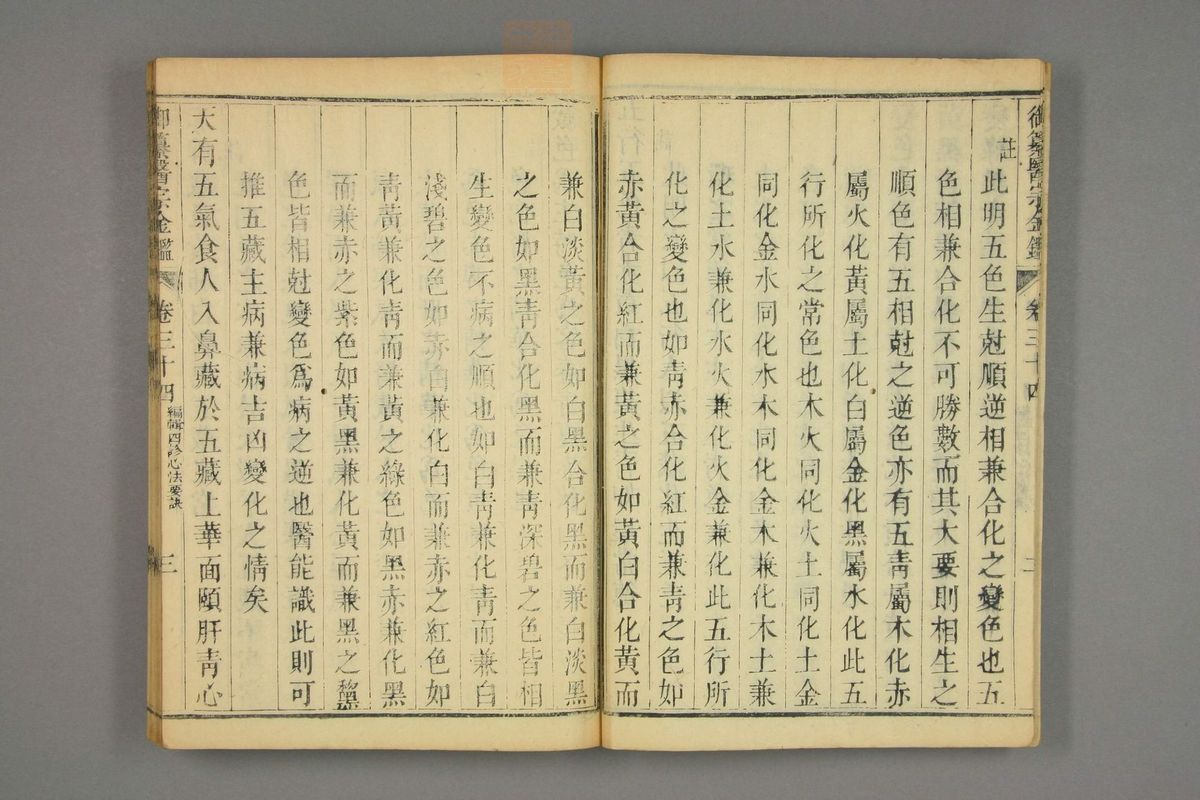 御纂醫宗金鑑 卷三十四 二
註
此明五色生尅順逆相兼合化之變色也五
色相兼合化不可勝數而其大要則相生之
順色有五相尅之逆色亦有五靑屬木化赤
屬火化黃屬土化白屬金化黑屬水化此五
行所化之常色也木火同化火土同化土金
同化金水同化水木同化金木兼化木土兼
化土水兼化水火兼化火金兼化此五行所
化之變色也如靑赤合化紅而兼靑之色如
赤黃合化紅而兼黃之色如黃白合化黃而
兼白淡黃之色如白黑合化黑而兼白淡黑
之色如黑靑合化黑而兼靑深碧之色皆相
生變色不病之順也如白靑兼化靑而兼白
淺碧之色如赤白兼化白而兼赤之紅色如
靑黃兼化靑而兼黃之綠色如黑赤兼化黑
而兼赤之紫色如黃黑兼化黃而兼黑之黧
色皆相尅變色爲病之逆也醫能識此則可
推五藏主病兼病吉凶變化之情矣
天有五氣食人入鼻藏於五藏上華面頤肝靑心
御纂醫宗金鑑 卷三十四 編輯四診心法要訣 三